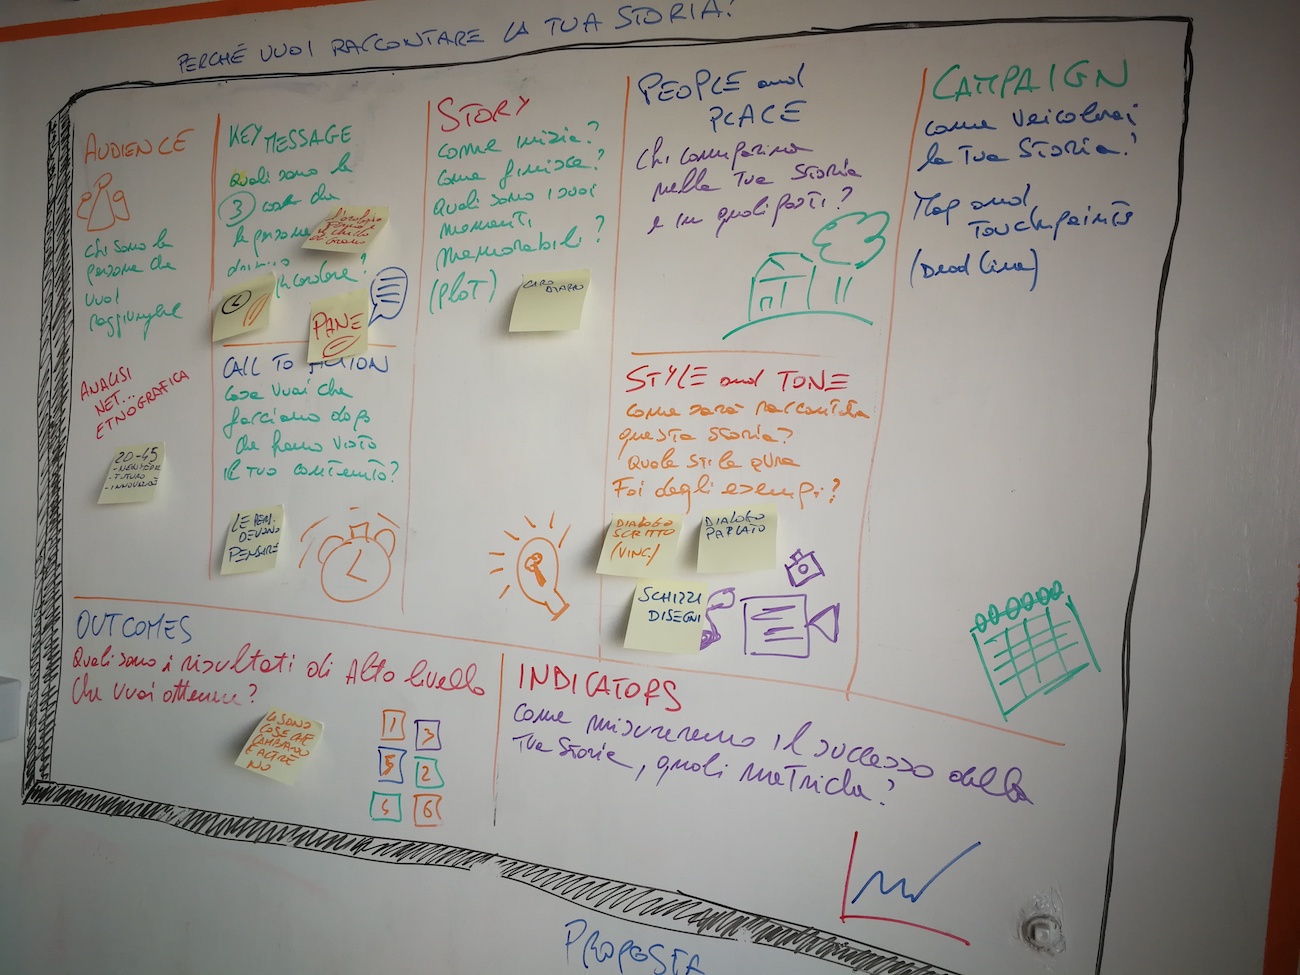 PERCHÉ VUOI RACCONTARE LA TUA STORIA?
AUDIENCE
Chi sono le
persone che
vuoi
raggiungere
ANALISI
NET...
ETNOGRAFICA
20-45
- FUTURO
KEY MESSAGE
Quali sono le
3 cose che
le persone
ricordare?
PANE
CALL TO ACTION
Cosa vuoi che
facciano dopo
che hanno visto
il tuo contenuto?
LE PERS.
DEVONO
PENSARE
STORY
Come inizia?
Come finisce?
Quali sono i suoi
momenti
memorabili?
(PLOT)
CARO
DIARIO
PEOPLE and
PLACE
Chi compariva
nella tua storia
e in quali posti?
STYLE and TONE
Come sarà raccontata
questa storia?
Quale stile avrà
Fai degli esempi?
DIALOGO
SCRITTO
DIALOGO
PARLATO
SCHIZZI
DISEGNI
CAMPAIGN
Come veicolerai
la tua storia?
Map and
Touchpoints
(Deadline)
OUTCOMES
Quali sono i risultati di Alto livello
che vuoi ottenere?
CI SONO
COSE CHE
CAMBIANO
E ALTRE
NO
1
3
5
2
6
INDICATORS
Come misureremo il successo della
tua storia, quali metriche?
PROPOSTA